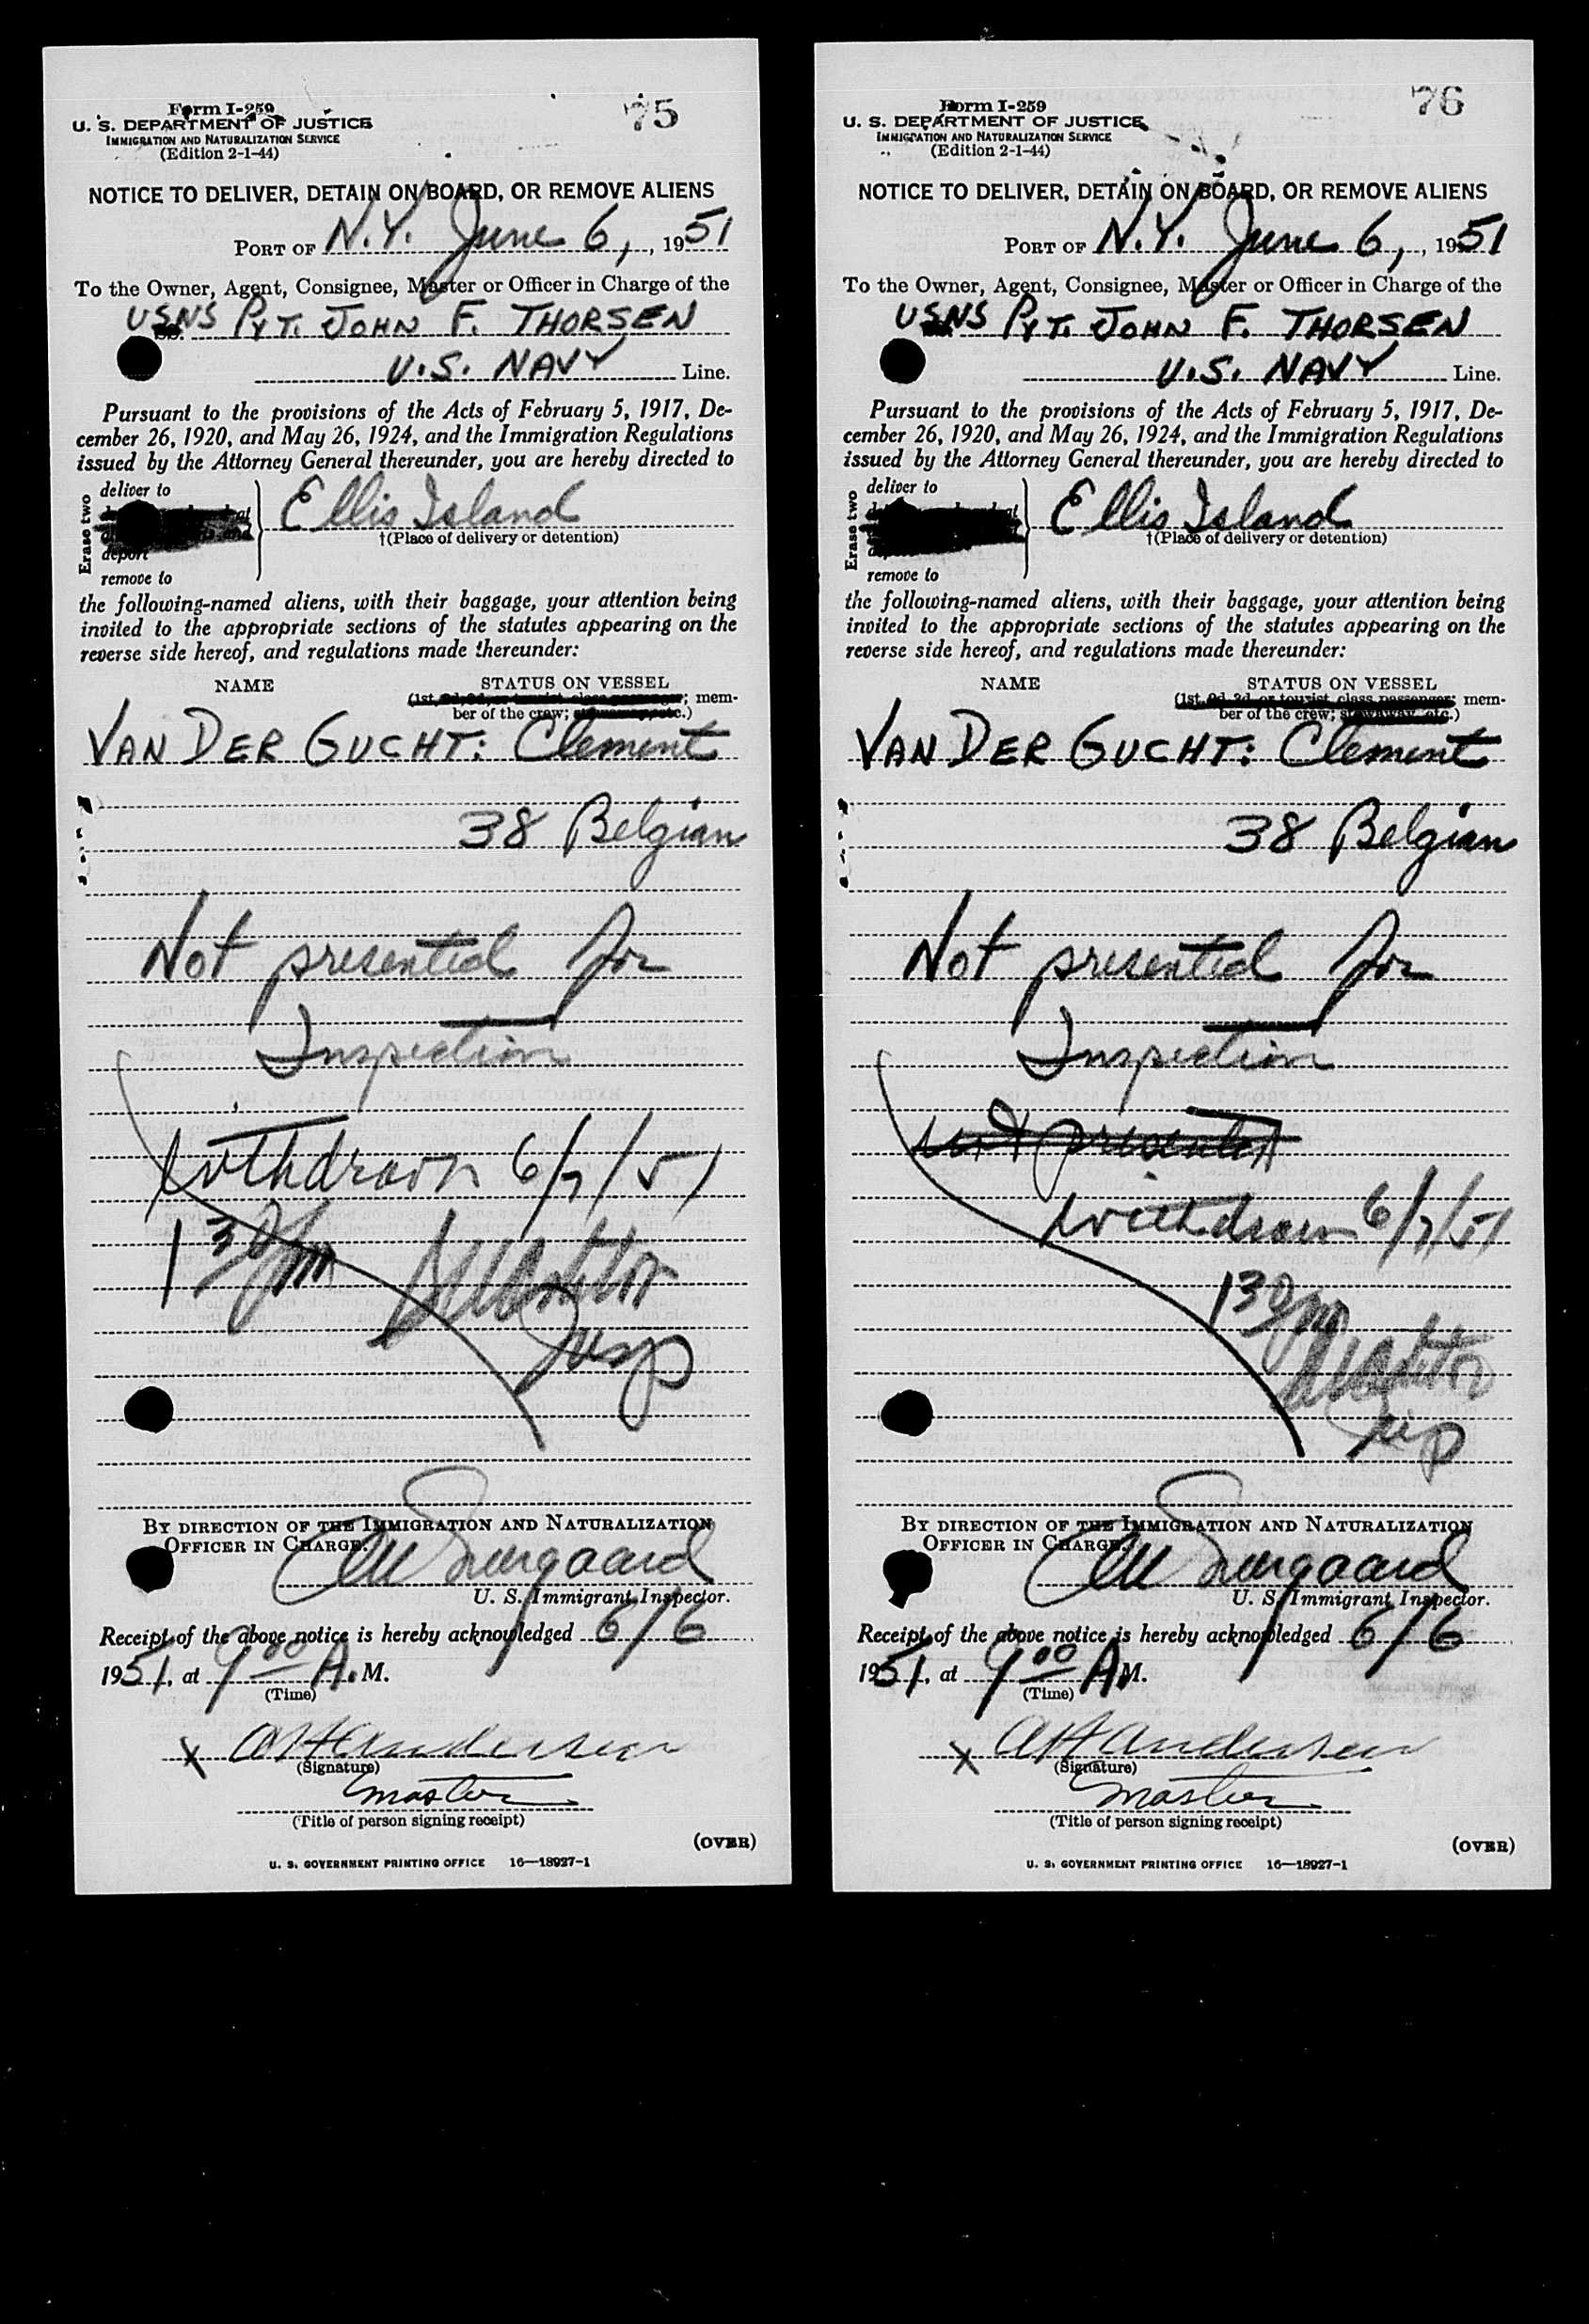 Form I-259
75
U. S. DEPARTMENT OF JUSTICE
IMMIGRATION AND NATURALIZATION SERVICE
(Edition 2-1-44)
NOTICE TO DELIVER, DETAIN ON BOARD, OR REMOVE ALIENS
PORT OF N.Y. June 6, , 1951
To the Owner, Agent, Consignee, Master or Officer in Charge of the
USNS PVT. JOHN F. THORSEN
U.S. NAVY Line.
Pursuant to the provisions of the Acts of February 5, 1917, De-
cember 26, 1920, and May 26, 1924, and the Immigration Regulations
issued by the Attorney General thereunder, you are hereby directed to
Erase two
deliver to
Ellis Island
†(Place of delivery or detention)
deport
remove to
the following-named aliens, with their baggage, your attention being
invited to the appropriate sections of the statutes appearing on the
reverse side hereof, and regulations made thereunder:
NAME STATUS ON VESSEL
(1st, 2d, 3d, or tourist class passenger; mem-
ber of the crew; stowaway, etc.)
VAN DER GUCHT: Clement
38 Belgian
Not presented for
Inspection
Withdrawn 6/7/51
1 30 pm
Insp
BY DIRECTION OF THE IMMIGRATION AND NATURALIZATION
OFFICER IN CHARGE.
U. S. Immigrant Inspector.
Receipt of the above notice is hereby acknowledged 6/6
1951, at 9 00 A. M.
(Time)
X A H Andersen
(Signature)
Master
(Title of person signing receipt)
(OVER)
U. S. GOVERNMENT PRINTING OFFICE 16—18927-1
Form I-259
76
U. S. DEPARTMENT OF JUSTICE
IMMIGRATION AND NATURALIZATION SERVICE
(Edition 2-1-44)
NOTICE TO DELIVER, DETAIN ON BOARD, OR REMOVE ALIENS
PORT OF N.Y. June 6, , 1951
To the Owner, Agent, Consignee, Master or Officer in Charge of the
USNS PVT. JOHN F. THORSEN
U.S. NAVY Line.
Pursuant to the provisions of the Acts of February 5, 1917, De-
cember 26, 1920, and May 26, 1924, and the Immigration Regulations
issued by the Attorney General thereunder, you are hereby directed to
Erase two
deliver to
Ellis Island
†(Place of delivery or detention)
remove to
the following-named aliens, with their baggage, your attention being
invited to the appropriate sections of the statutes appearing on the
reverse side hereof, and regulations made thereunder:
NAME STATUS ON VESSEL
(1st, 2d, 3d, or tourist class passenger; mem-
ber of the crew; stowaway, etc.)
VAN DER GUCHT: Clement
38 Belgian
Not presented for
Inspection
not presented
withdrawn 6/7/51
1 30 pm
Insp
BY DIRECTION OF THE IMMIGRATION AND NATURALIZATION
OFFICER IN CHARGE.
U. S. Immigrant Inspector.
Receipt of the above notice is hereby acknowledged 6/6
1951, at 9 00 A. M.
(Time)
X A H Andersen
(Signature)
Master
(Title of person signing receipt)
(OVER)
U. S. GOVERNMENT PRINTING OFFICE 16—18927-1